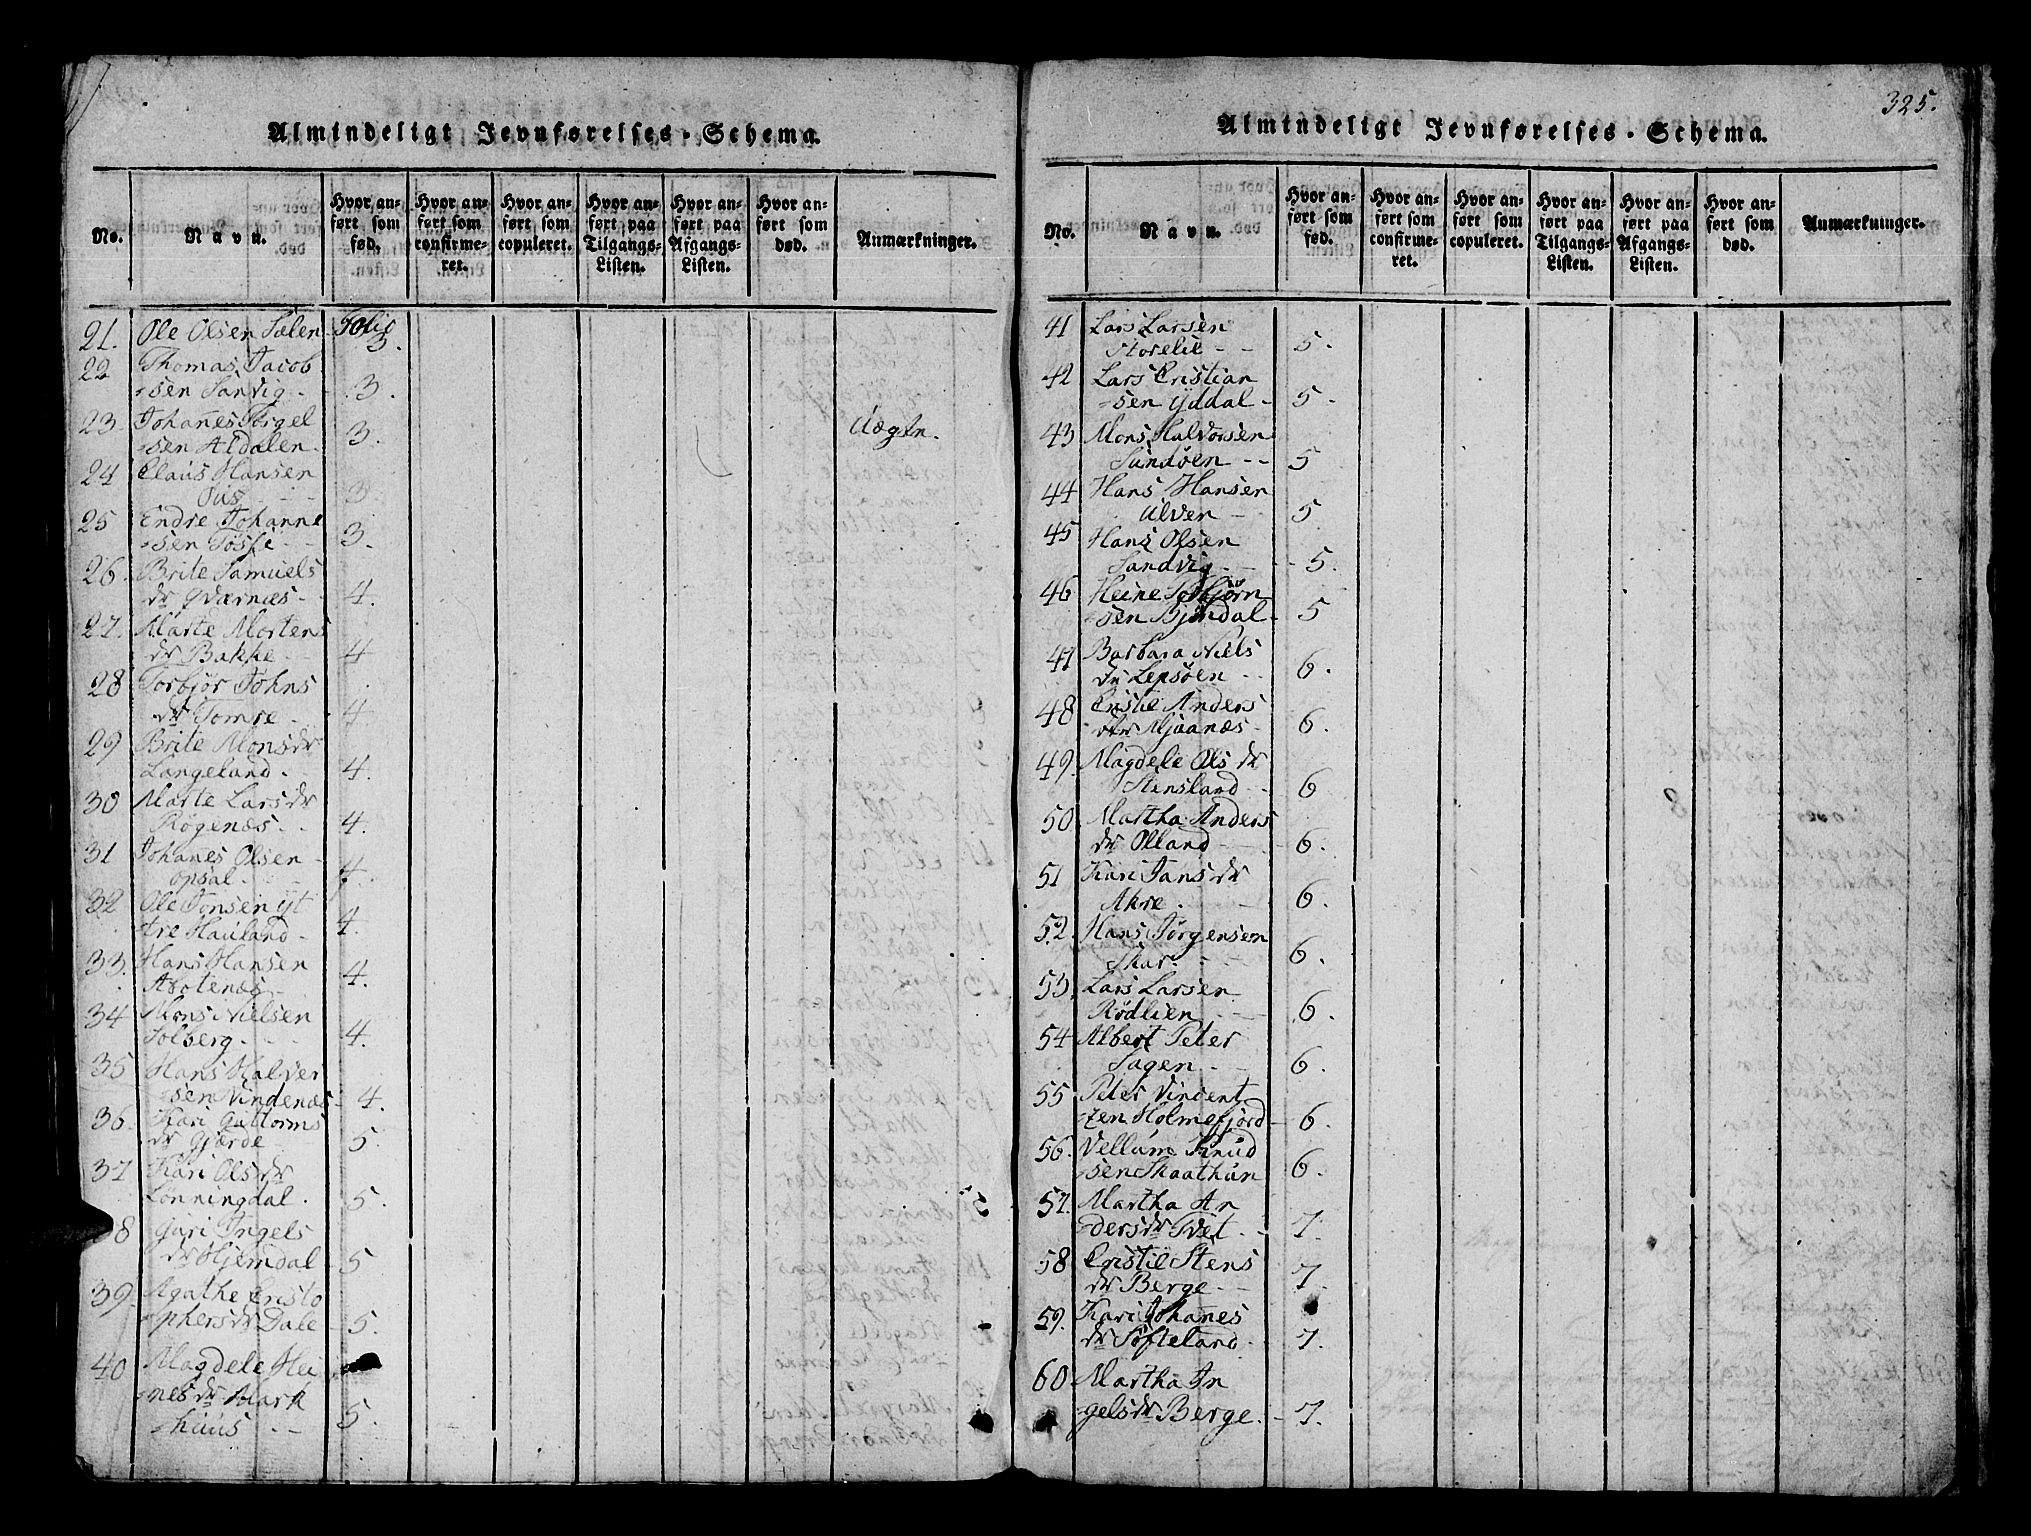 Almindeligt Jevnførelses-Schema.
No. Navn. Hvor anført som fød. Hvor anført som confirmeret. Hvor anført som copuleret. Hvor anført paa Tilgangs-Listen. Hvor anført paa Afgangs-Listen. Hvor anført som død. Anmærkninger.
21. Ole Olsen Sælen Folio 3.
22 Thomas Jacob
-sen Sanvig - 3.
23 Johannes Torgel
-sen Aldalen 3. Uægte.
24 Claus Hansen
Sus - - 3.
25 Endre Johanne
-sen Tøsse - - 3.
26. Brite Samuels
dr Qværnæs - - 4.
27. Marte Mortens
dr Bakke - - 4
28 Torbjør Johns
dr Tomre - 4
29 Brite Monsdr
Langeland. 4.
30 Marte Larsdr
Røgenæs - - 4.
31 Johannes Olsen
opsal - - 4.
32 Ole Jonsen yt
-tre Hauland - 4.
33. Hans Hansen
Axotenæs - 4.
34 Mons Nielsen
Solberg - - 4.
35 Hans Halver
-sen Vindenæs - 4.
36. Kari Guttorms
dr Gjærde 5.
37 Kari Olsdr
Lønningdal. 5.
8 Guri Ingels
dr Hjemdal - 5
39. Agathe Cristo
-phersdr Dale - 5.
40 Magdele Hei
-nesdr Mark
-huus - - 5.
325.
Almindeligt Jevnførelses-Schema.
No. Navn. Hvor anført som fød. Hvor anført som confirmeret. Hvor anført som copuleret. Hvor anført paa Tilgangs-Listen. Hvor anført paa Afgangs-Listen. Hvor anført som død. Anmærkninger.
41 Lars Larsen
Storelie - - 5.
42 Lars Cristian
-sen yddal - 5.
43 Mons Halvorsen
Sundøen - - 5
44 Hans Hansen
Ulven - - 5
45 Hans Olsen
Sandvig - - 5.
46 Heine Torbjørn
-sen Bjøndal - 5
47 Barbara Niels
dr Lepsøen - - 6.
48 Cristie Anders
dtr Mjuanæs - 6.
49. Magdele Ols dr
Stensland - - 6
50. Martha Anders
dr Olland - - 6.
51 Kari Jansdr
Akre. - 6.
52. Hans Jørgensen
Skar. - - 6.
53. Lars Larsen
Rødlien - - 6.
54 Albert Peter
Sagen - - 6.
55 Peter Vincent
-zen Holmefjord - 6.
56. Vellum Knud
-sen Skaathun 6.
57. Martha An
-dersdr Tvet. - 7.
58 Cristie Stens
dr Berge - - 7.
59. Kari Johannes
dr Søfteland - 7.
60 Martha In
-gelsdr Berge. - 7.